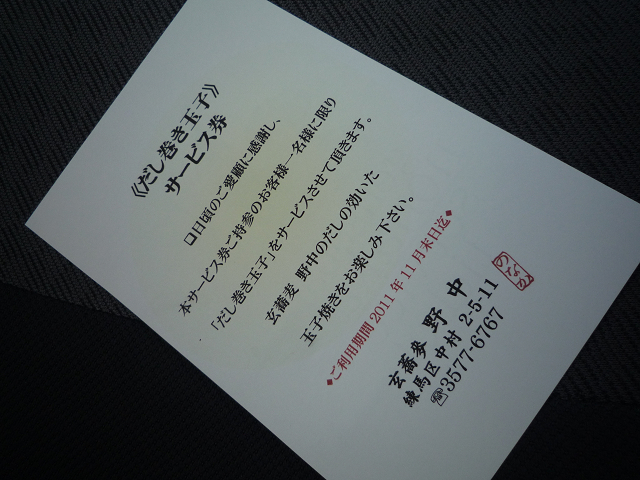 《だし巻き玉子》
サービス券
口日頃のご愛顧に感謝し、
本サービス券ご持参のお客様一名様に限り
「だし巻き玉子」をサービスさせて頂きます。
玄蕎麦 野中のだしの効いた
玉子焼きをお楽しみ下さい。
◆ご利用期間 2011年11月末日迄◆
玄蕎麥 野中
練馬区中村 2-5-11
☎3577-6767
のなか